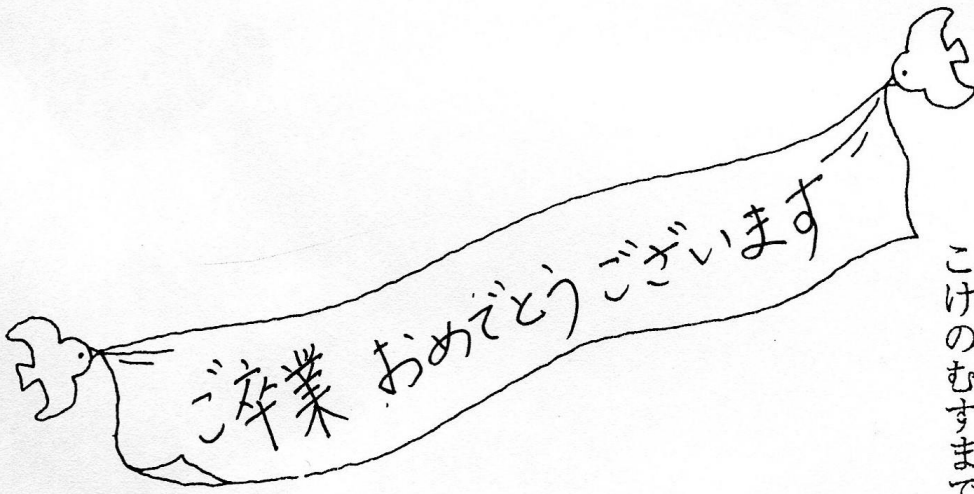 ご卒業 おめでとう ございます
こけのむすまで